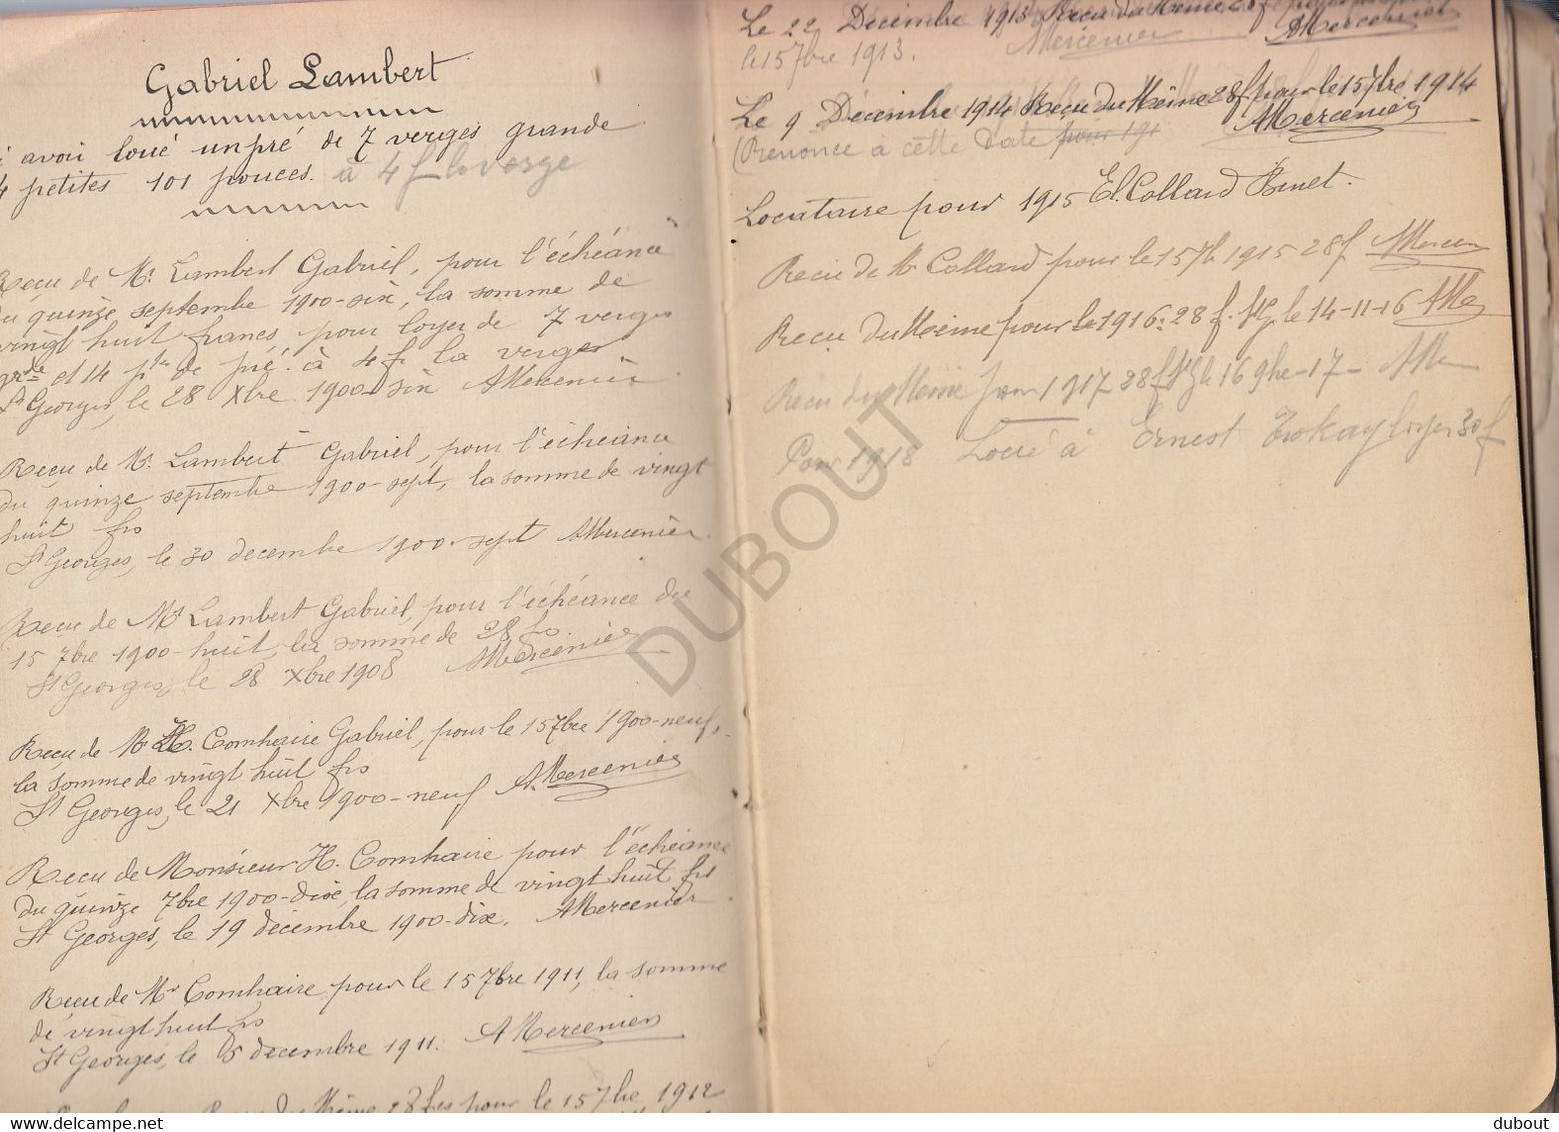 Gabriel Lambert
avoir loué un pré de 7 verges grande
4 petites 101 pouces. à 4 f la verge
Recu de Mr. Lambert Gabriel, pour l'échéance
du quinze septembre 1900-six, la somme de
vingt huit francs pour loyer de 7 verges
grde et 14 ptes de pré. à 4 f. la verge
St Georges, le 28 Xbre 1900-six AMercenier
Reçu de Mr. Lambert Gabriel, pour l'échéance
du quinze septembre 1900-sept, la somme de vingt
huit frs
St Georges, le 30 decembre 1900-sept AMercenier
Recu de Mr Lambert Gabriel, pour l'échéance du
15 7bre 1900-huit, la somme de 28 frs
St Georges, le 28 Xbre 1908 AMercenier
Reçu de Mr H. Comhaire Gabriel, pour le 15 7bre 1900-neuf,
la somme de vingt huit frs
St Georges, le 21 Xbre 1900-neuf A.Mercenier
Recu de Monsieur H. Comhaire pour l'échéance
du quinze 7bre 1900-dix, la somme de vingt huit frs
St Georges, le 19 décembre 1900-dix. AMercenier
Reçu de Mr Comhaire pour le 15 7bre 1911, la somme
de vingt huit frs
St Georges, le 5 decembre 1911. AMercenier
du Même 28 frs pour le 15 7bre 1912
Le 22 Décembre 1913 Recu du Même 28 f pour
le 15 7bre 1913. Mercenier AMercenier
Le 9 Décembre 1914 Recu du Même 28 f pour le 15 7bre 1914
(Renonce a cette date pour 191 AMercenier
Locataire pour 1915 El. Collard Binet.
Recu de Mr Collard pour le 15 7b 1915 28 f AMercen
Reçu du Même pour le 1916: 28 f. StG. le 14-11-16 AMe
Recu du Même pour 1917 28 f StG le 16 9bre-17- AMe
Pour 1918 Loué à Ernest Trokay loyer 30 f
DUBOUT
www.delcampe.net
dubout